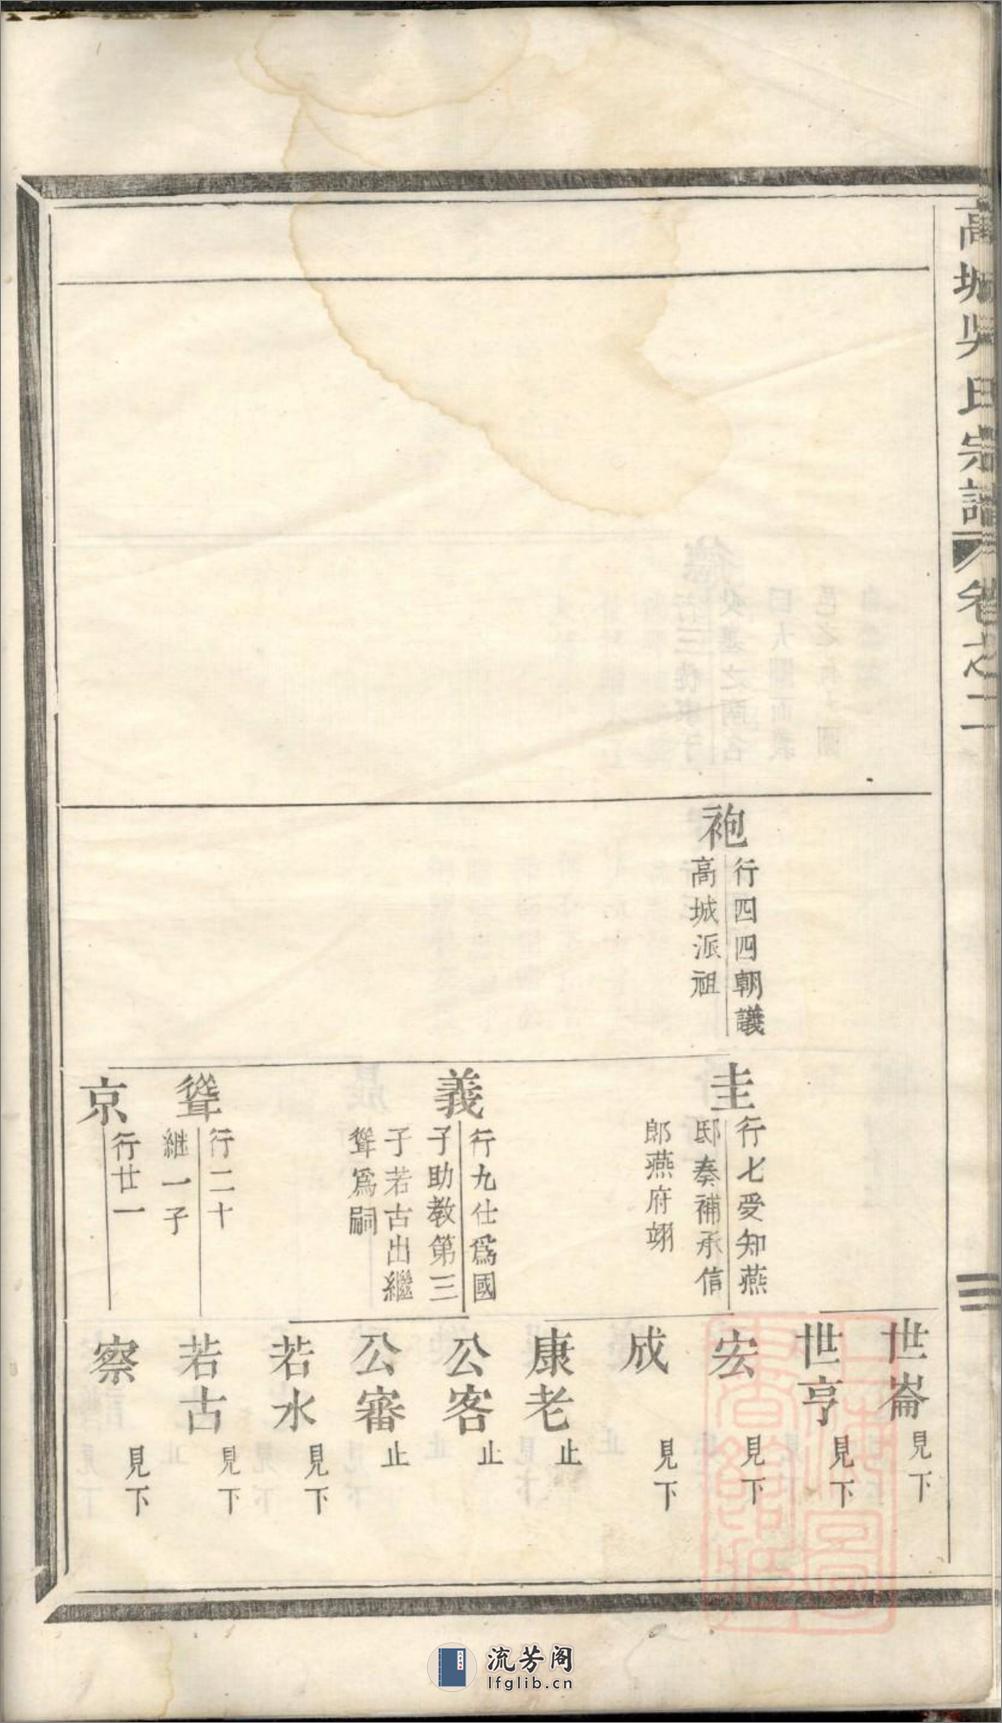 高城吳氏宗譜 卷之二
袍
行四四朝議
高城派祖
圭
行七受知燕
邸奏補承信
郎燕府翊
義
行九仕爲國
子助教第三
子若古出繼
聳爲嗣
聳
行二十
継一子
京
行廿一
世崙 見下
世亨 見下
宏 見下
成 見下
康老 止
公客 止
公審 止
若水 見下
若古 見下
察 見下
流芳阁
lfglib.cn